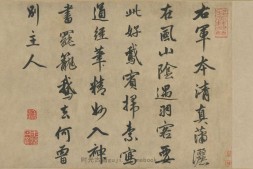 右軍本清真瀟灑
在風山陰遇羽客要
此好鵝賓掃素寫
道經筆精妙入神
書罷籠鵝去何曾
別主人